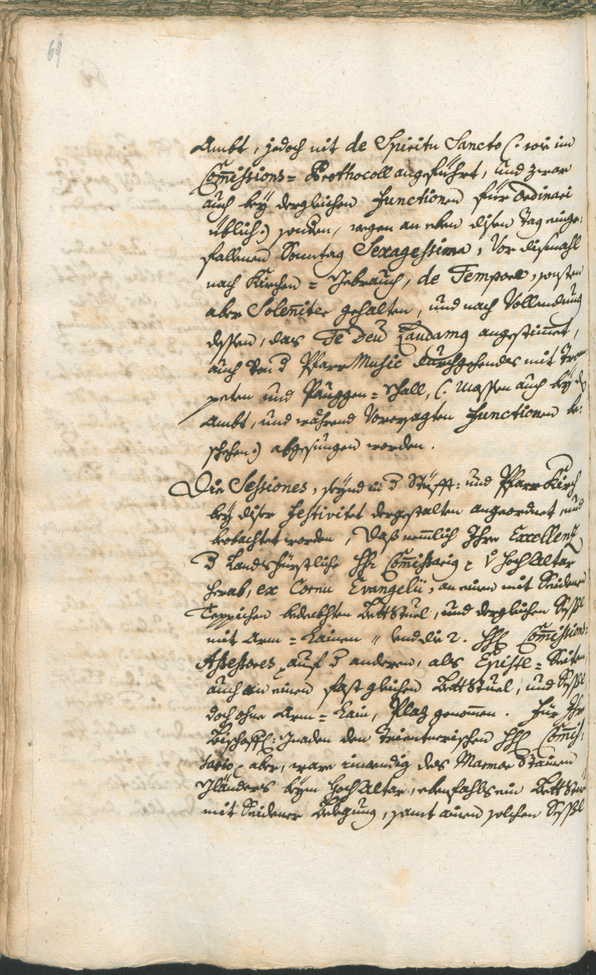 69
Ambt, jedoch nit de Spiritu Sancto (: wie im
Com̄issions= Prothocoll angeführt, und zwar
auch bey dergleichen Functionen für Ordinari
üblich:) sondern, wegen an eben disen Tag einge-
fallenen Sonntag Sexagessima, Vor dismahl
nach Kirchen= Gebrauch, de Tempore, sonsten
aber Solenniter gehalten, und nach Vollendung
dessen, das Te Deu Laudamg angestimet,
auch von d Pfarr Music durchgehendes mit Trom
peten und Pauggen= Schall, (: Massen auch bey d
Ambt, und während Vorersagten Functionen be-
schehen:) abgesungen worden.
Die Sessiones, seynd in d Stüfft: und Pfarr Kirch
bey diser Festivitet dergestalten angeordnet, und
beobachtet worden, Daß nemlich Ihro Excellenz
d Landsfürstliche Hh: Com̄issarig c V Hoch Altar
herab, ex Cornu Evangelii, an einen mit Seidenen
Teppichen bedeckhten Bettstuel, und dergleichen Sessl
mit Arm= Lainen " und die 2. HH: Com̄issions-
Assessores, auf d anderen, als Epistl= Seiten,
auch an einen fast gleichen Bettstuel, und Sessl
doch ohne Arm= Lain, Plaz genom̄en. Für Ihr
Bischöffl: Gnaden den Trientnerischen HH: Com̄is-
sario, aber, ware inwendig des Marmor Stainen
Gländers beym Hoch Altar, ebenfahls ein Bettstuel
mit Seidener Belegung, samt ainen solchen Sessl